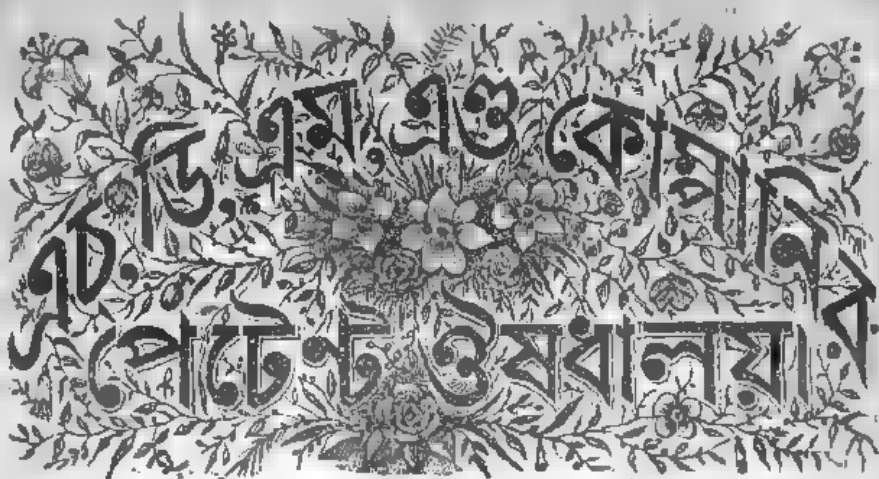 এচ, ডি, এম, এণ্ড কোম্পানির
পেটেণ্ট ঔষধালয়।